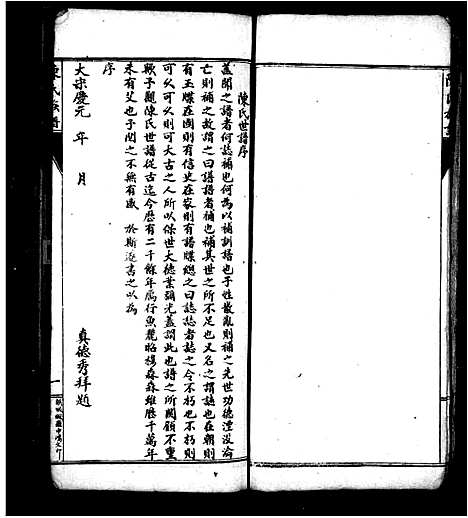 陳氏世譜序
蓋聞之譜者何誌補也何為以補訓譜也子姓散亂則補之先世功德湮沒淪
亡則補之故謂之曰譜譜者補也補其世之所不足也又名之謂誌也在朝則
有玉牒在國則有信史在家則有譜牒總之曰誌誌者誌之今不朽也不朽則
可久可久則可大古之人所以保世大德業彌光蓋謂此也譜之所關顧不重
歟予觀陳氏世譜從古迄今歷有二千餘年雁行魚麗昭穆森森雖歷千萬年
未有艾也予閱之不無有感於斯遂書之以為
序
大宋慶元年月
真德秀拜題
陳氏族譜
一